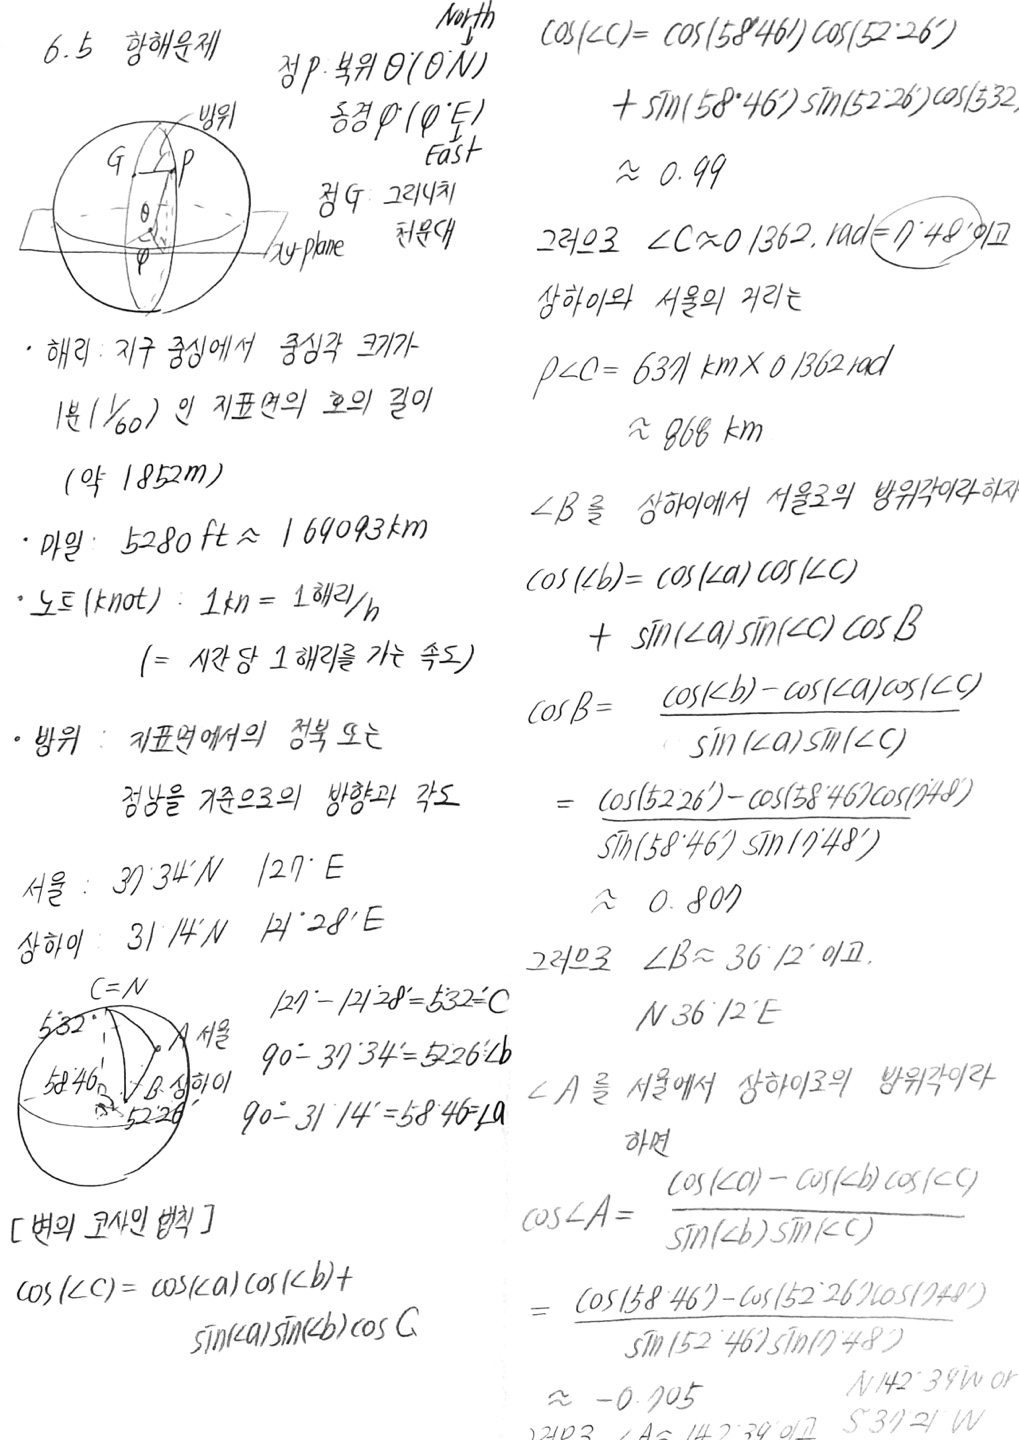 6.5 항해문제
North
점P: 북위 θ°(θ°N)
동경 φ°(φ°E)
East
점G: 그리니치
천문대
방위
G P
θ
φ
xy plane
· 해리: 지구 중심에서 중심각 크기가
1분(1/60)인 지표면의 호의 길이
(약 1852m)
· 마일: 5280ft ≈ 1.69093km
· 노트(knot): 1kn = 1해리/h
(= 시간당 1해리를 가는 속도)
· 방위: 지표면에서의 정북 또는
정남을 기준으로의 방향과 각도
서울: 37°34'N 127°E
상하이: 31°14'N 121°28'E
C=N
5°32'
A 서울
58°46'
B 상하이
52°26'
127°-121°28'=5°32'=C
90°-37°34'=52°26'=∠b
90°-31°14'=58°46'=∠a
[변의 코사인 법칙]
cos(∠C)= cos(∠a)cos(∠b)+
sin(∠a)sin(∠b)cos C
cos(∠C)= cos(58°46')cos(52°26')
+ sin(58°46')sin(52°26')cos(5°32'
≈ 0.99
그러므로 ∠C≈0.1362. rad=7°48'이고
상하이와 서울의 거리는
ρ∠C= 6371 km×0.1362rad
≈ 868 km
∠B를 상하이에서 서울로의 방위각이라하자
cos(∠b)= cos(∠a)cos(∠C)
+ sin(∠a)sin(∠C)cosB
cosB= cos(∠b)-cos(∠a)cos(∠C)
sin(∠a)sin(∠C)
= cos(52°26')-cos(58°46')cos(7°48')
sin(58°46')sin(7°48')
≈ 0.807
그러므로 ∠B≈36°12'이고,
N36°12'E
∠A를 서울에서 상하이로의 방위각이라
하면
cos∠A= cos(∠a)-cos(∠b)cos(∠C)
sin(∠b)sin(∠C)
= cos(58°46')-cos(52°26')cos(7°48')
sin(52°46')sin(7°48')
≈ -0.705
N142°39'W or
S37°21'W
그러므로 ∠A≈142°39'이고